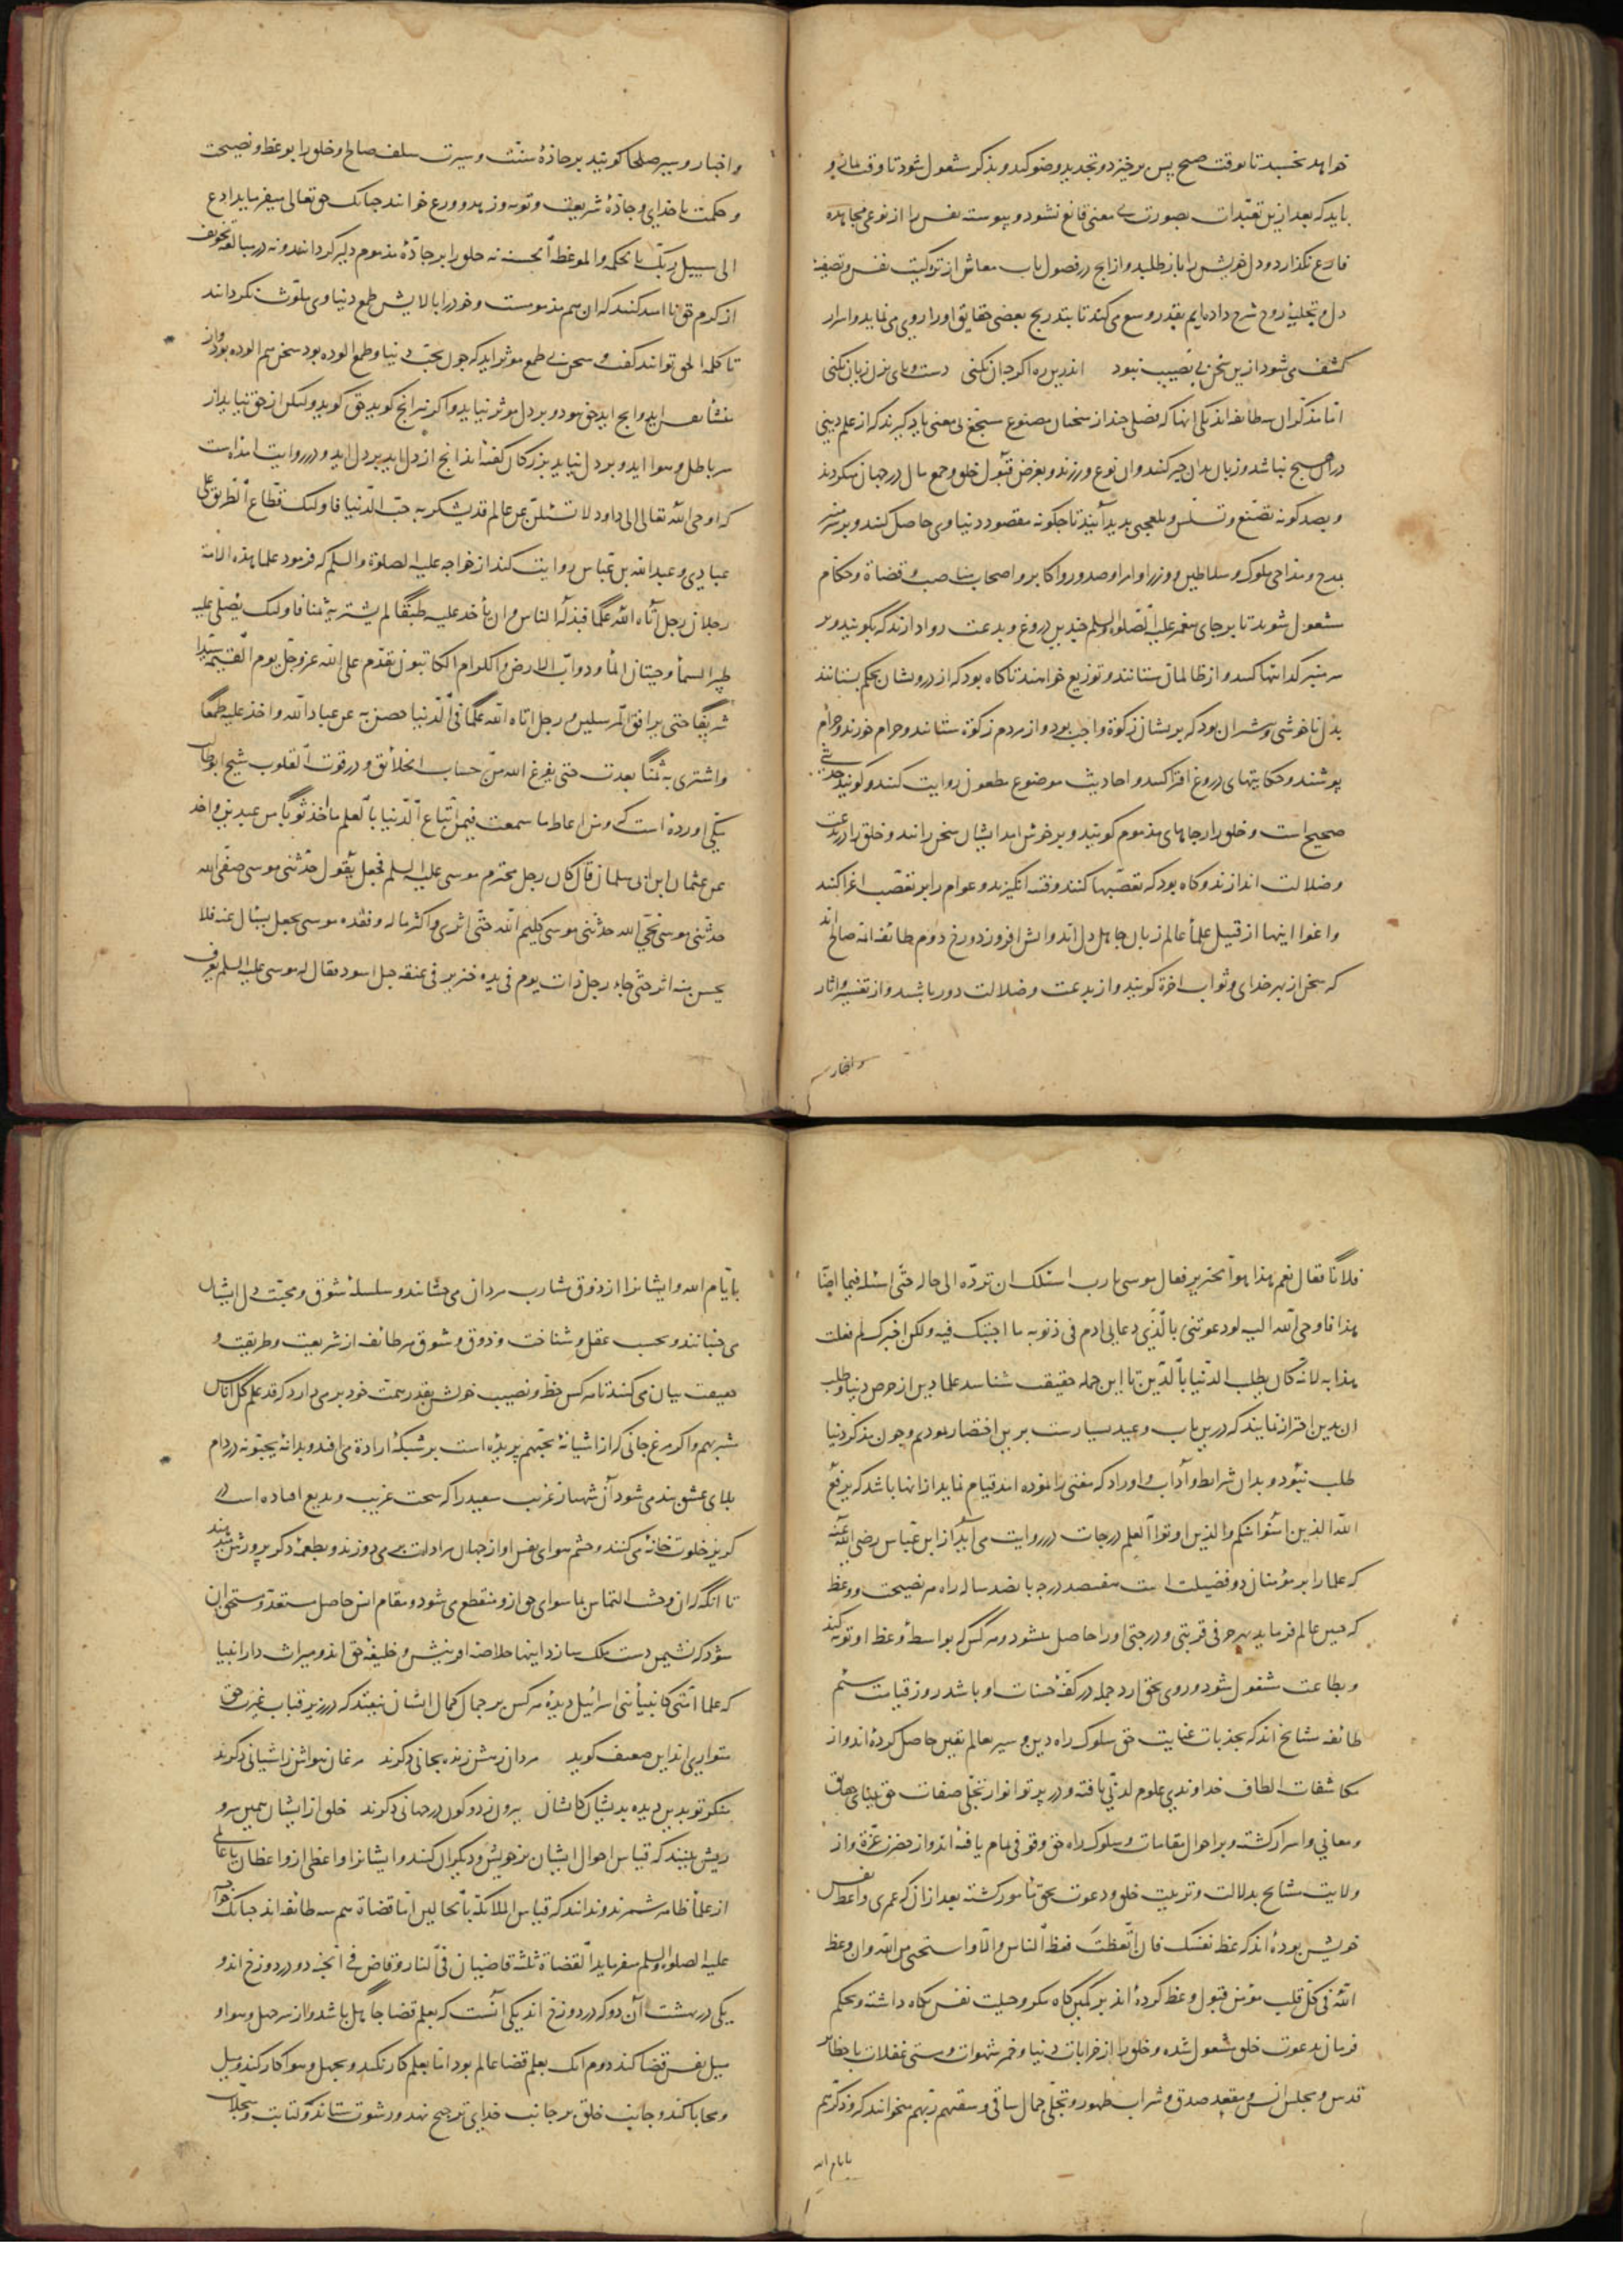 خواهد بخسبد تا بوقت صبح پس برخیزد و تجدید وضو کند و بذکر مشغول شود تا وقت نماز و
باید که بعد ازین تعبّدات بصورت بی معنی قانع نشود و پیوسته نفس را از نوعی مجاهده
فارغ نگذارد و دل خویش را باز طلبد و از انچ در فصول باب معاش از تزکیت نفس و تصفیهٔ
دل و تجلیهٔ روح شرح داده‌ایم بقدر وسع می کند تا بتدریج بعضی حقایق او را روی می نماید و اسرار
کشف می شود ازین سخن بی نصیب نبود اندرین ره اگر چه آن نکنی دست و پای بزن زیان نکنی
امّا مذکّران سه طایفه اند یکی انها که فصلی چند از سخنان مصنوع مسجّع بی معنی یاد گیرند که از علم دینی
در اصل هیچ نباشد و زبان بدان جیر کنند و ان نوع ورزند و بغرض قبول خلق و جمع مال در جهان میکردند
و بصد گونه تصنّع و تسلّس و بلعجبی پدید آیند تا چگونه مقصود دنیاوی حاصل کنند و بر سر منبر
بمدح و مداحی ملوک و سلاطین و وزرا و امرا و صدور و اکابر و اصحاب مناصب و قضاة و حکام
مشغول شوند تا بر جای پیغمبر علیه الصلوه و السلم چندین دروغ و بدعت روا دارند که بگویند و بر
سر منبر کدائیها کنند و از ظالمان ستانند و توزیع خواهند تا گاه بود که از درویشان بحکم بستانند
بدل ناخوشی و بیشتر آن بود که بریشان زکوة واجب بود و از مردم زکوة ستانند و حرام خورند و حرام
پوشند و حکایتهای دروغ افترا کنند و احادیث موضوع مطعون روایت کنند و گویند حدیثی
صحیح است و خلق را رجاهای مذموم گویند و بر خوش امد ایشان سخن رانند و خلق را در بدعت
و ضلالت اندازند و گاه بود که تعصّبها کنند و فتنه انگیزند و عوام را بر تعصّب اغرا کنند
و اغوا اینها از قبیل علماء عالم زبان جاهل دل اند و آتش افروز دوزخ دوم طائفه ائمه صالح اند
که سخن از بهر خدای و ثواب اخرة گویند و از بدعت و ضلالت دور باشند و از تفسیر و اثار
و اخبار
و اخبار و سیر صلحا گویند بر جادّهٔ سنّت و سیرت سلف صالح و خلق را بوعظ و نصیحت
و حکمت با خدای و جادّهٔ شریعت و توبه و زهد و ورع خوانند چنانک حق تعالی میفرماید ادع
الی سبیل ربّک بالحکمه و الموعظه الحسنه نه خلق را بر جادّهٔ مذموم دلیر گردانند و نه در مبالغهٔ تخویف
از کرم حق نا امید کنند که ان هم مذمومست و خود را بالایش طمع دنیاوی ملوّث نگردانند
تا کلمه الحق توانند گفت و سخن بی طمع موثر اید که چون بحبّ دنیا و طمع الوده بود سخن هم الوده بود و از
منشاء نفس اید و انچ اید حق نبود و بر دل موثر نیاید و اگر نیز انچ گوید حق گوید ولیکن از حق نیاید از
سر باطل و هوا اید و بر دل نیاید بزرگان گفته اند انچ از دل اید بر دل اید و در روایت امده است
که اوحی الله تعالی الی داود لا تسئلنّ عن عالم قد یشکر به حبّ الدّنیا فاولئک قطّاع الطریق علی
عبادی و عبد الله بن عبّاس روایت کند از خواجه علیه الصلوة و السلم که فرمود علما هذه الامّة
رجلان رجل آتاه الله علماً فبذله الناس و لن یأخذ علیه طمعاً لم یشتر به ثمنا فاولئک یصلّی علیه
طیر السماء و حیتان الماء و دوابّ الارض و الکرام الکاتبون تقدّم علی الله عزّ و جلّ یوم القیمه سیّداً
شریفاً حتی یرافق المرسلین و رجل اتاه الله علماً فی الدّنیا فضنّ به عن عباد الله و اخذ علیه طمعاً
و اشتری به ثمناً یعذب حتی یفرغ الله من حساب الخلائق و در قوت القلوب شیخ ابو طالب
مکّی اورده است که و من اغلظ ما سمعت فیمن اتباع الدّنیا بالعلم ما
عن عثمان ابن ابی سلمان قال کان رجل یخدم موسی علیه السلم فجعل یقول حدّثنی موسی صفیّ الله
حدّثنی موسی نجیّ الله حدّثنی موسی کلیم الله حتّی اثری و اکثر ماله و فقده موسی فجعل یسأل عنه فلا
یحسّ منه اثر حتّی جاء رجل ذات یوم فی یده خنزیر فی عنقه حبل اسود فقال له موسی علیه السلم تعرف
فلاناً فقال نعم هذا هو الخنزیر فقال موسی یا رب اسئلک ان تردّه الی حاله حتّی اسئله فیما اصابه
هذا فاوحی الله الیه لو دعوتنی بالّذی دعانی ادم فی ذنوبه ما اجبتک فیه ولکن اخبرک لم فعلت
هذا به لانّه کان یطلب الدّنیا بالدّین تا این جمله حقیقت شناسد علما دین از حرص دنیا و طلب
ان بدین احتراز نمایند که درین باب وعید بسیارست برین اختصار نمودیم و چون مذکّر دنیا
طلب نبود و بدان شرایط و آداب و اوراد که مفتی را نموده امد قیام نماید از انها باشد که یرفع
الله الذین آمنوا منکم و الذین اوتوا العلم درجات در روایت می آید از ابن عبّاس رضی الله عنه
که علما را بر مؤمنان دو فضیلت است هفتصد درجه پانصد ساله راه هر نصیحت و وعظ
که چنین عالم فرماید بهر حرفی قربتی و درجتی او را حاصل میشود و هر کس که بواسطهٔ وعظ او توبه کند
و بطاعت مشغول شود و روی بحق ارد جمله در کفّهٔ حسنات او باشد روز قیامت سیّم
طائفه مشایخ اند که بجذبات عنایت حق سلوک راه دین و سیر بعالم یقین حاصل کرده اند و از
مکاشفات الطاف خداوندی علوم لدنّی یافته و در پرتو انوار تجلّی صفات حق بینای حقایق
و معانی و اسرار گشته و بر احوال مقامات و سلوک راه حق وقوفی تمام یافته اند و از حضرت عزّة و از
ولایت مشایخ بدلالت و تربیت خلق و دعوت بحق مامور گشته بعد از ان که عمری واعظ نفس
خویش بوده اند که عظ نفسک فان اتّعظت فعظ الناس و الّا و استحیی من الله و ان وعظ
الله فی کلّ قلب مؤمن قبول وعظ کرده اند بر کمین گاه مکر و حیلت نفس نگاه داشته و بحکم
فرمان بدعوت خلق مشغول شده و خلق را از خرابات دنیا و خمر شهوات و مستی غفلات با حظایر
قدس و مجلس انس و مقعد صدق و شراب طهور و تجلّی جمال ساقی و سقیهم ربّهم میخوانند که و ذکّرهم
بایام الله
بایّام الله و ایشانرا از ذوق مشارب مردان می چشانند و سلسلهٔ شوق و محبّت دل ایشان
می جنبانند و بحسب عقل و شناخت و ذوق و شوق هر طائفه از شریعت و طریقت و
حقیقت بیان می کنند تا هر کس حظ و نصیب خویش بقدر همّت خود بر می دارد که قد علم کلّ اناس
مشربهم و اگر مرغ جانی که از آشیانهٔ یحبّهم پریده است بر شبکهٔ ارادة می افتد و بدانهٔ یحبّونه در دام
بلای عشق بند می شود آن شهباز غریب سعید را که سخت غریب و بدیع افتاده است
کریز خلوتخانه می کنند و چشم هوای نفس او از جهان مرادات بر می دوزند و بطعمهٔ ذکر پرورش میدهند
تا انگه که ان وحشت التماس ما سوای حق ازو منقطع می شود و مقام انس حاصل مستعد و مستحق ان
شود که نشیمن دست ملک سازد اینها خلاصهٔ افرینش و خلیفهٔ حق اند و میراث دار انبیا
که علما امّتی کانبیاء بنی اسرائیل دیدهٔ هر کس بر جمال کمال ایشان نیفتد که در زیر قباب غیرت حق
متواری اند این ضعیف گوید مردان رهش زنده بجانی دگرند مرغان هواش ز اشیانی دگرند
منگر تو بدین دیده بدیشان کایشان بیرون ز دو کون در جهانی دگرند خلق از ایشان همین سر و
ریش بینند که قیاس احوال ایشان بر خویش و دیگران کنند و ایشانرا واعظی از واعظان یا عالمی
از علماء ظاهر شمرند و ندانند که قیاس الملائکة بالحدّادین امّا قضاة هم سه طائفه اند چنانک خواجه
علیه الصلوه و السلم میفرماید القضاة ثلثة قاضیان فی النّار و قاض فی الجنّه دو در دوزخ اند و
یکی در بهشت آن دو که در دوزخ اند یکی آنست که بعلم قضا جاهل باشد و از سر جهل و هوا و
میل نفس قضا کند دوم انک بعلم قضا عالم بود امّا بعلم کار نکند و بجهل و هوا کار کند و میل
و محابا کند و جانب خلق بر جانب خدای ترجیح نهد و رشوت ستاند و کتابت و سجلّات